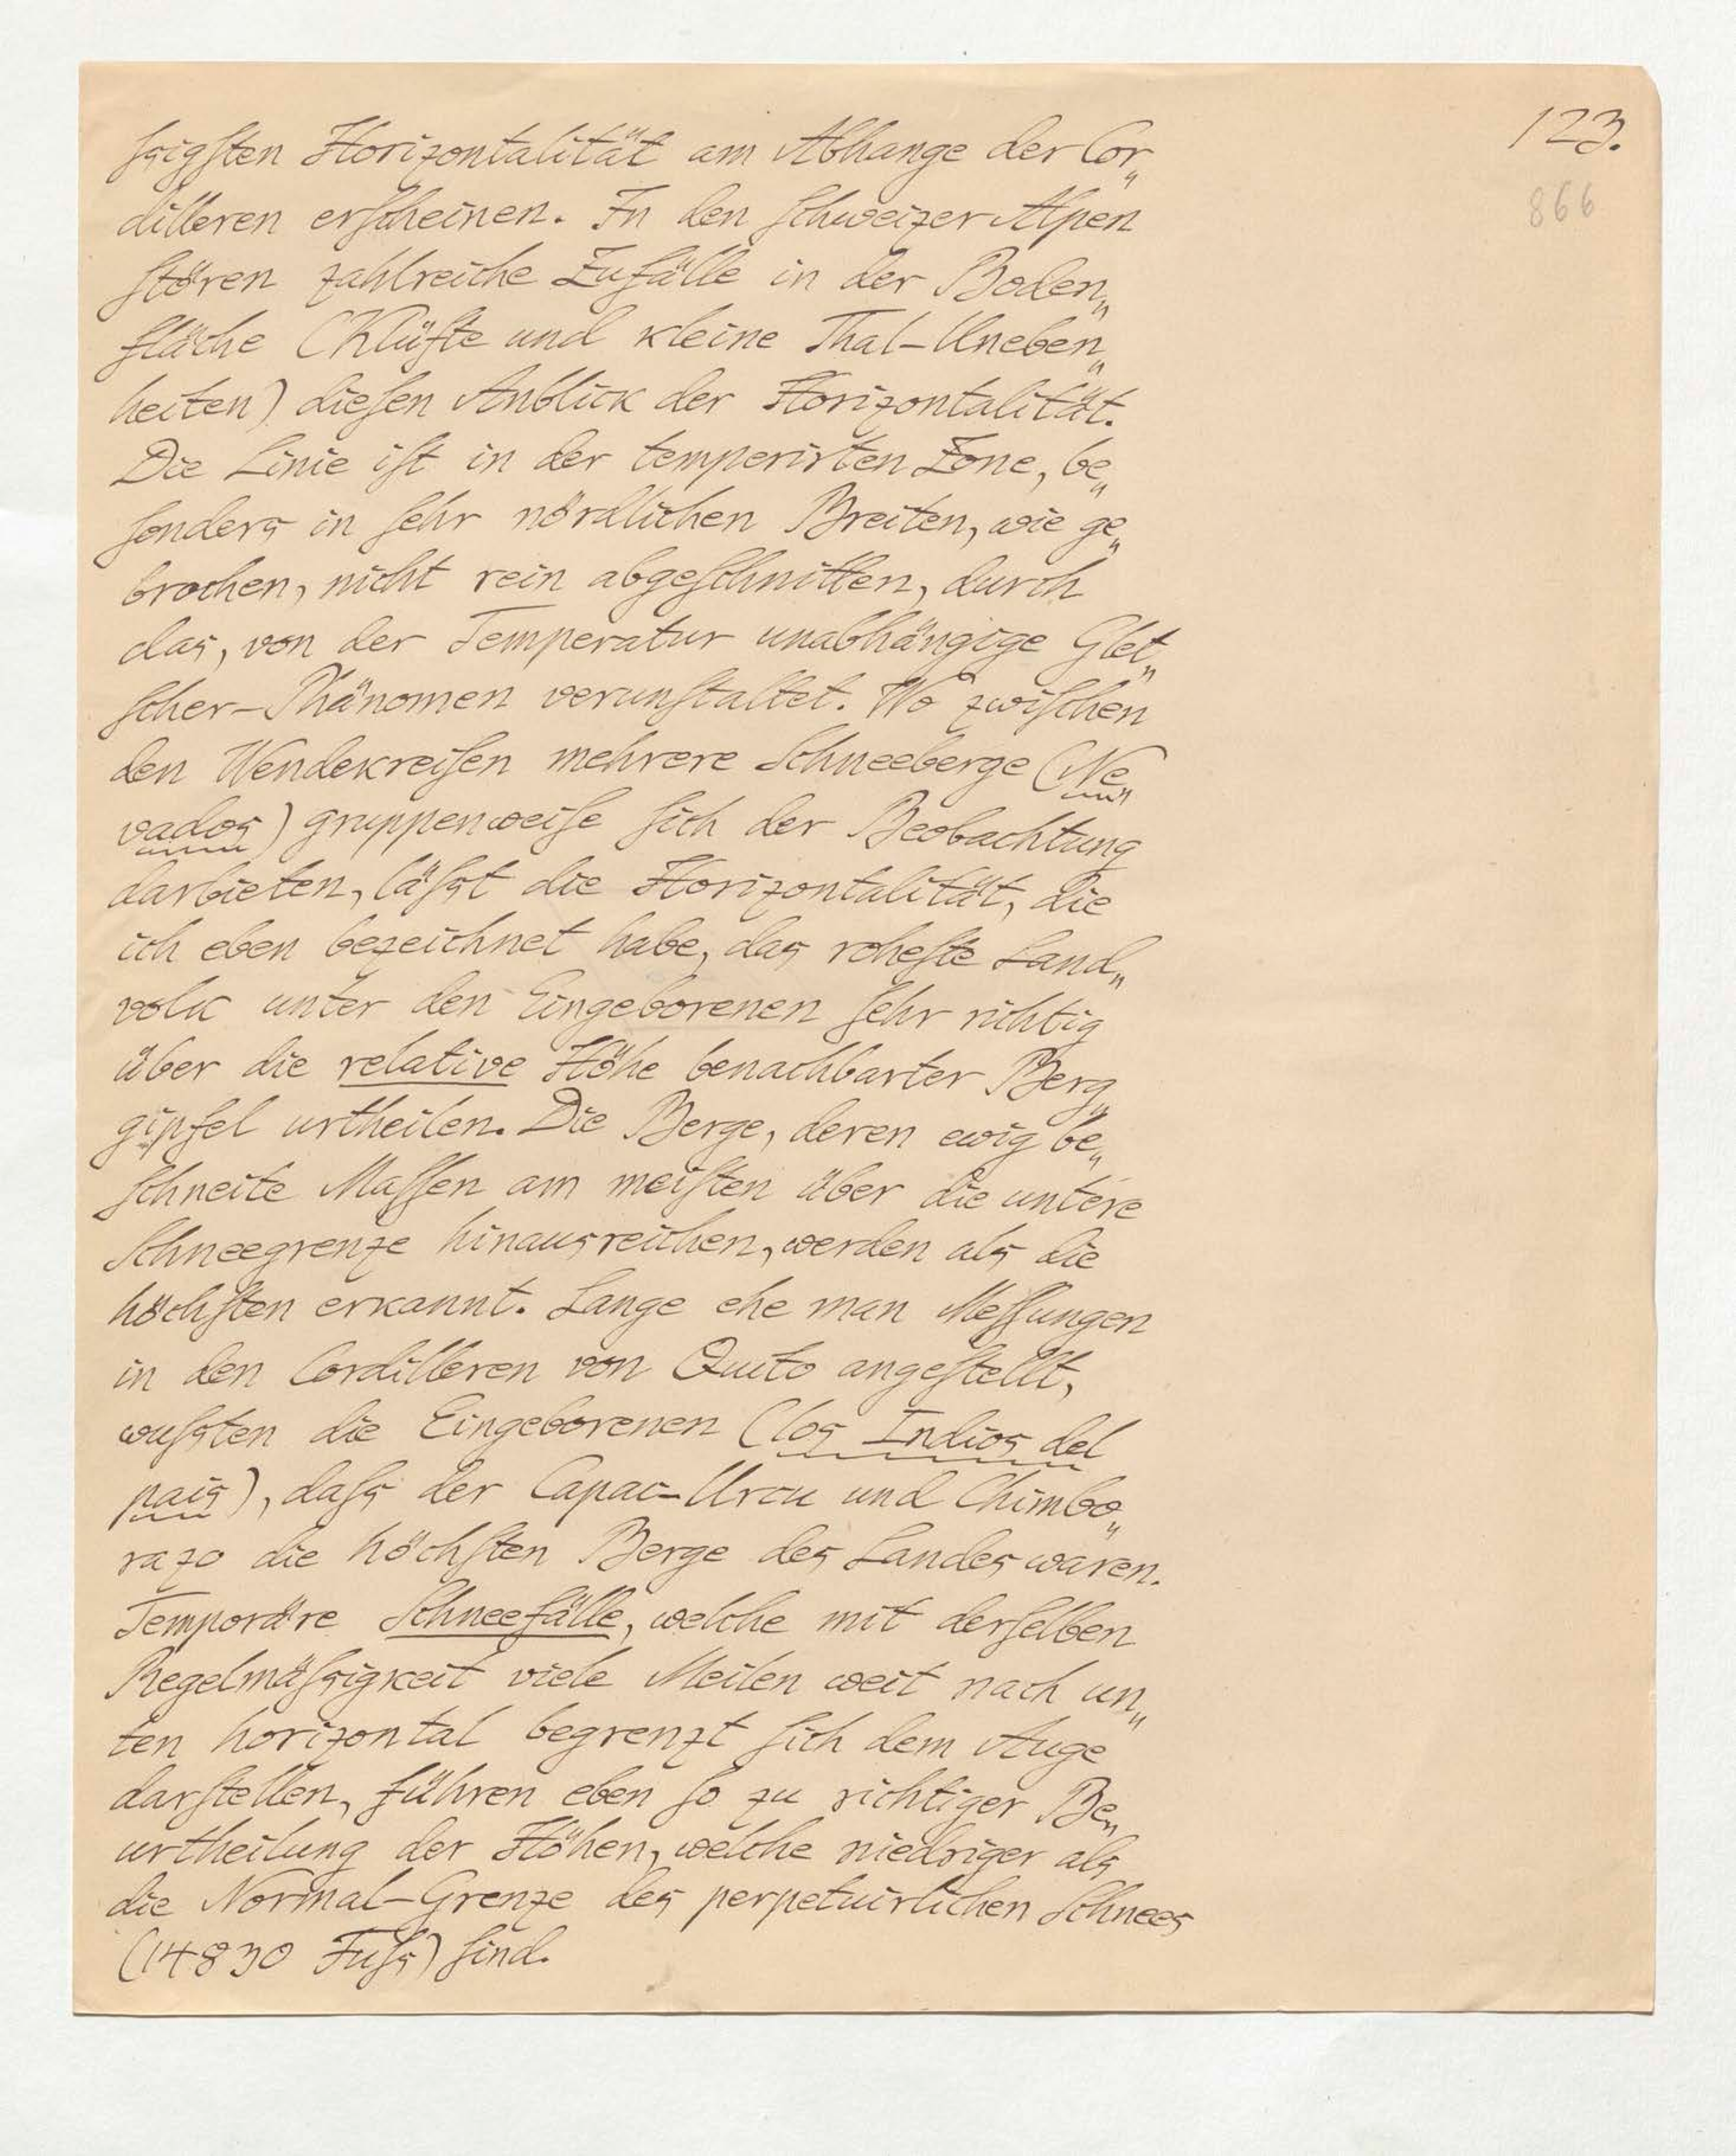 123.
866
ſsigſten Horizontalität am Abhange der Cor„
dilleren erſcheinen. In den Schweizer Alpen
ſtören zahlreiche Zufälle in der Boden„
fläche (Klüfte und kleine Thal-Uneben„
heiten) dieſen Anblick der Horizontalität.
Die Linie iſt in der temperirten Zone, be„
ſonders in ſehr nördlichen Breiten, wie ge„
brochen, nicht rein abgeſchnitten, durch
das, von der Temperatur unabhängige Glet„
ſcher-Phänomen verunſtaltet. Wo zwiſchen
den Wendekreiſen mehrere Schneeberge (Ne„
vados) gruppenweiſe ſich der Beobachtung
darbieten, läſst die Horizontalität, die
ich eben bezeichnet habe, das roheſte Land„
volk unter den Eingeborenen ſehr richtig
über die relative Höhe benachbarter Berg„
gipfel urtheilen. Die Berge, deren ewig be„
ſchneite Maſſen am meiſten über die untere
Schneegrenze hinausreichen, werden als die
höchſten erkannt. Lange ehe man Meſſungen
in den Cordilleren von Quito angeſtellt,
wuſsten die Eingeborenen (los Indios del
pais), daſs der Capac-Urcu und Chimbo„
razo die höchſten Berge des Landes waren.
Temporäre Schneefälle, welche mit derſelben
Regelmäſsigkeit viele Meilen weit nach un„
ten horizontal begrenzt ſich dem Auge
darſtellen, führen eben ſo zu richtiger Be„
urtheilung der Höhen, welche niedriger als
die Normal-Grenze des perpetuirlichen Schnees
(14830 Fuſs) ſind.